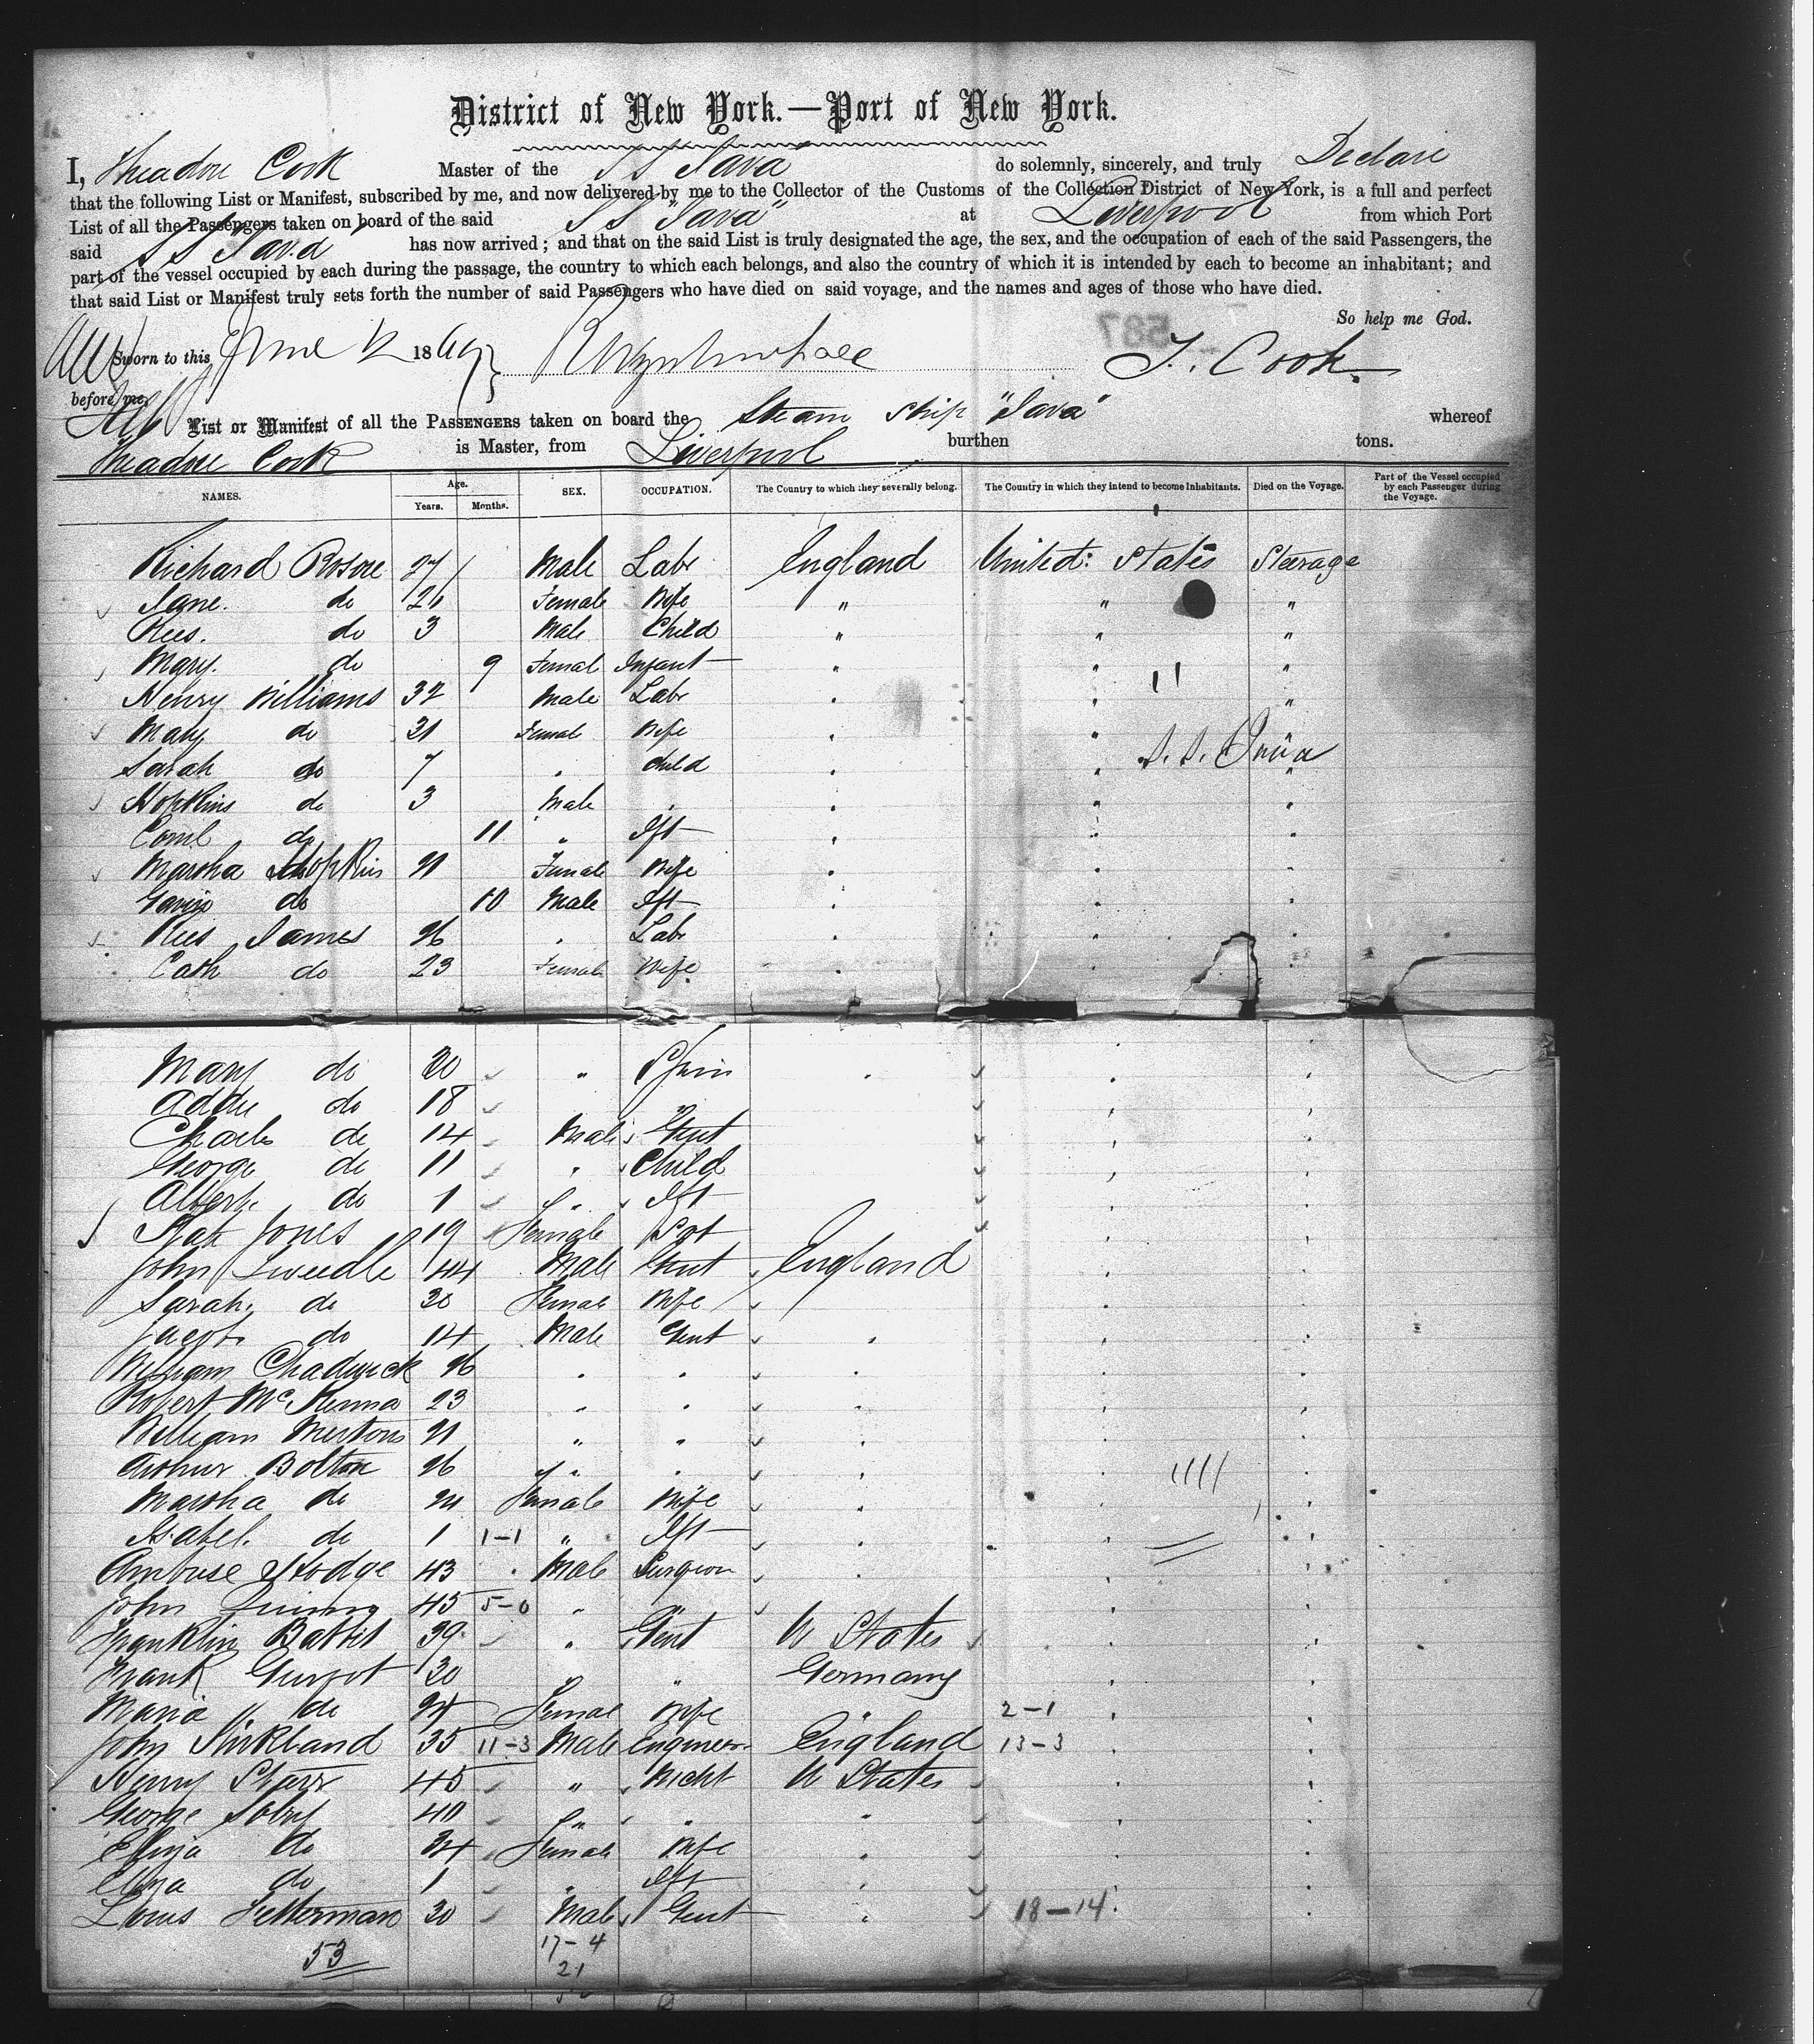 District of New York.—Port of New York.
I, Theadore Cook Master of the SS Java do solemnly, sincerely, and truly Declare
that the following List or Manifest, subscribed by me, and now delivered by me to the Collector of the Customs of the Collection District of New York, is a full and perfect
List of all the Passengers taken on board of the said SS "Java" at Liverpool from which Port
said SS Java has now arrived; and that on the said List is truly designated the age, the sex, and the occupation of each of the said Passengers, the
part of the vessel occupied by each during the passage, the country to which each belongs, and also the country of which it is intended by each to become an inhabitant; and
that said List or Manifest truly sets forth the number of said Passengers who have died on said voyage, and the names and ages of those who have died.
So help me God.
587
Sworn to this June 12 1869 T. Cook
before me,
List or Manifest of all the PASSENGERS taken on board the Steam Ship "Java" whereof
Theadore Cook is Master, from Liverpool burthen tons.
NAMES. Age. Years. Months. SEX. OCCUPATION. The Country to which they severally belong. The Country in which they intend to become Inhabitants. Died on the Voyage. Part of the Vessel occupied by each Passenger during the Voyage.
Richard Rosore 27 Male Labr England United States Steerage
Jane. do 26 Female Wife " " "
Rees. do 3 Male Child " " "
Mary. do 9 Female Infant " " "
Henry Williams 32 Male Labr " " "
Mary do 31 Female Wife " "
S.S. Java
Sarah do 7 " Child " " "
Hopkins do 3 Male " " " "
do 11 " Ift " " "
Martha Hopkins 21 Female Wife " " "
do 10 Male Ift " " "
Rees James 26 " Labr " " "
Cath do 23 Female Wife " " "
Mary do 20 " Spin " " "
Addie do 18 " " "
Charls do 14 Male Gent " "
George do 11 " Child " "
Albert do 1 " Ift " "
Kate Jones 19 Female " "
John Tweedle 44 Male Gent England " "
Sarah do 30 Female Wife " "
Jacob do 14 Male Gent " " "
William Chadwick 26 " " " " "
Robert McKenna 23 " " " " "
William Mertons 21 " " " " "
Arthur Bolton 26 " " " " "
Martha do 21 Female Wife " " "
Isabel. do 1 1-1 " Ift " " "
Ambrose Hodge 43 Male Surgeon " " "
John 45 5-0 " " "
Franklin Battis 39 " Gent U States " "
Frank 30 " " Germany " "
Maria do 24 Female Wife " 2-1 "
John Kirkband 35 11-3 Male Engineer England 13-3 "
Henry Starr 45 " Mcht U States " "
George 40 " " " " "
Eliza do 34 Female Wife " " "
do 1 " Ift " " "
Louis Fetterman 30 Male Gent " 18-14 "
53
17-4
21